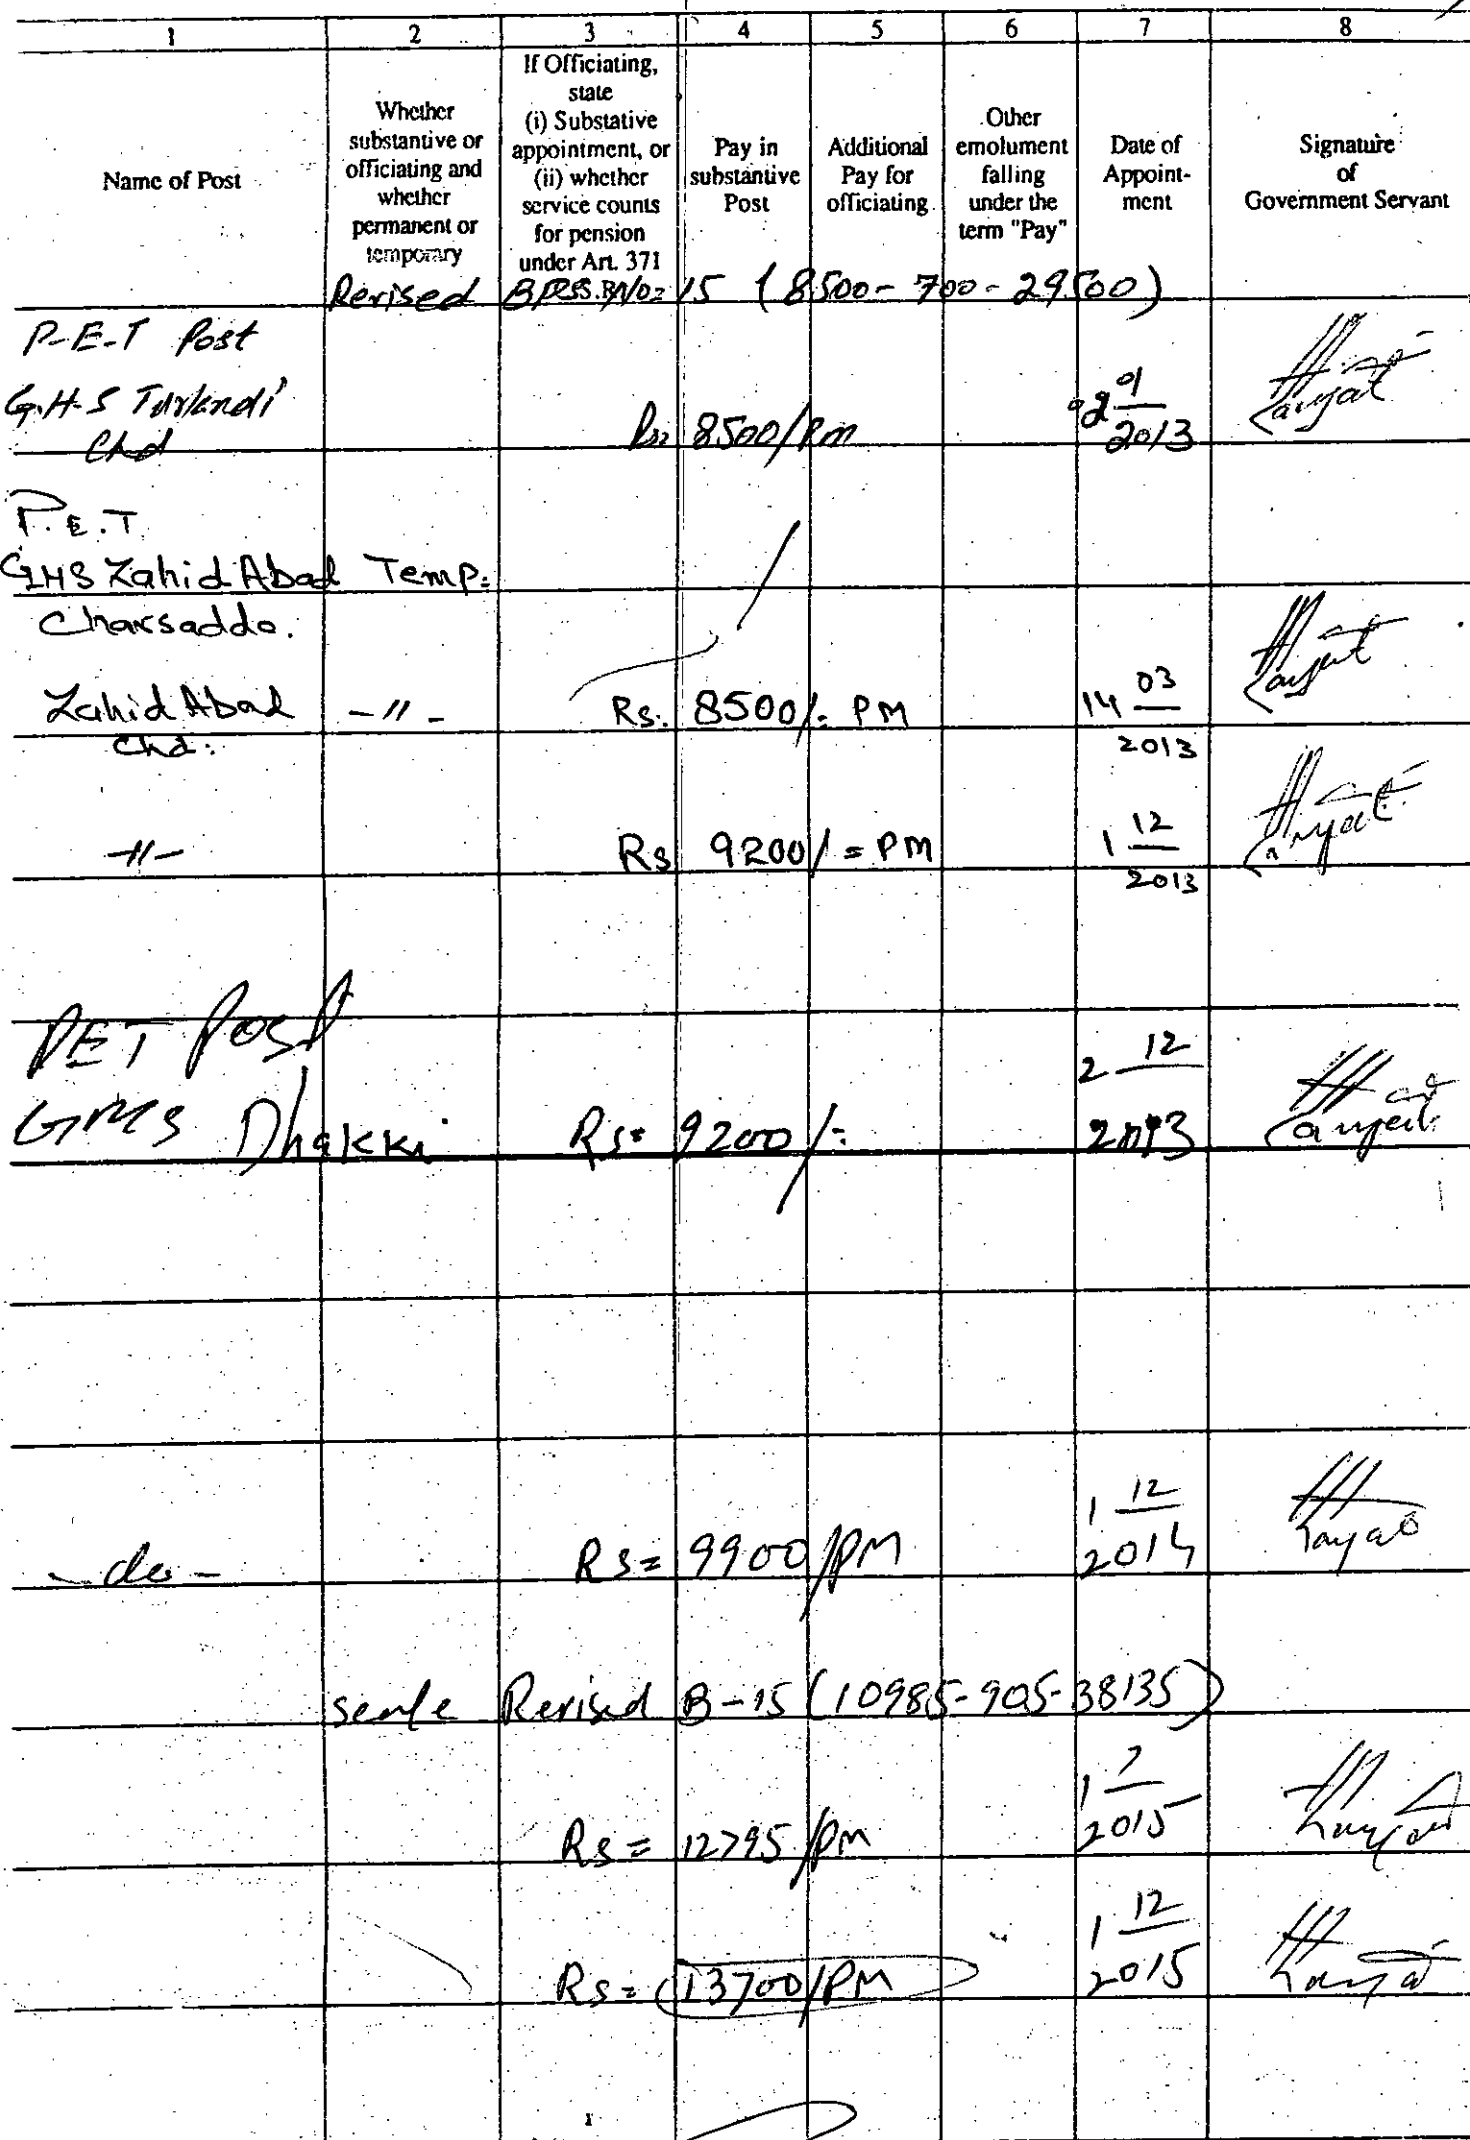 1 2 3 4 5 6 7 8
Name of Post
Whether
substantive or
officiating and
whether
permanent or
temporary
If Officiating,
state
(i) Substative
appointment, or
(ii) whether
service counts
for pension
under Art. 371
Pay in
substantive
Post
Additional
Pay for
officiating
Other
emolument
falling
under the
term "Pay"
Date of
Appoint-
ment
Signature
of
Government Servant
Revised 15 (8500-700-29500)
P-E-T Post
G.H-S
Chd
8500/Pm
01
2013
P.E.T.
GHS Zahid Abad Temp:
Charsadda.
Zahid Abad -11- Rs. 8500/- PM 14 03
Chd: 2013
-11- Rs 9200/= PM 1 12
2013
PET Post 2 12
GMS Dhakki Rs= 9200/= 2013
-do- Rs= 9900/PM 1 12
2014
scale Revised B-15 (10985-905-38135)
Rs= 12795/PM 1 7
2015
Rs= 13700/PM 1 12
2015